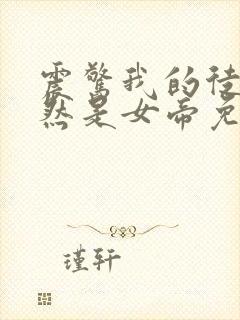 震惊我的徒
然是女帝免
瑾轩